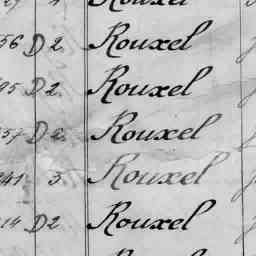 Rouxel
56 D 2 Rouxel
95 D 2 Rouxel
57 D 2 Rouxel
41 3 Rouxel
14 D 2 Rouxel